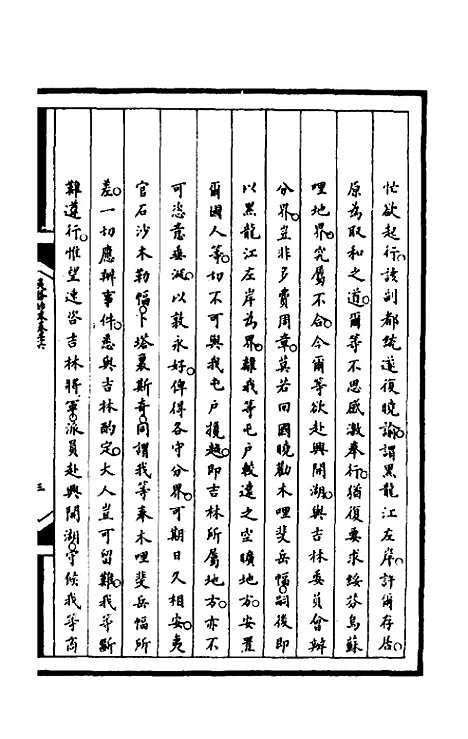 忙欲起行。該副都統遂復曉諭。謂黑龍江左岸。許爾存居。
原為取和之道。爾等不思感激奉行。猶復要求綏芬烏蘇
哩地界。究屬不合。今爾等欲赴興開湖。與吉林委員會辦
分界。豈非多費周章。莫若回國曉勸木哩斐岳幅。嗣後即
以黑龍江左岸為界。離我等屯戶較遠之空曠地方。安置
爾國人等。切不可與我屯戶攙越。即吉林所屬地方。亦不
可恣意焱滅。以敦永好。俾得各守分界。可期日久相安。夷
官石沙木勒幅。卜塔裏斯奇。同謂我等奉木哩斐岳幅所
差。一切應辦事件。悉與吉林酌定。大人豈可留難。我等斷
難遵行。惟望速咨吉林將軍。派員赴興開湖。守候我等商
三